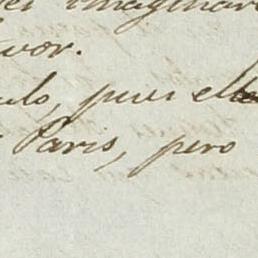 imaginar
vor.
ulo, pues ella
Paris, pero